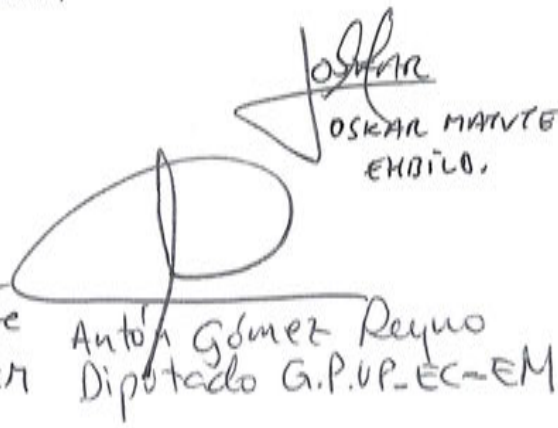 OSKAR MATUTE
EHBILD.
e Antón Gómez Reyno
Diputado G.P.UP-EC-EM